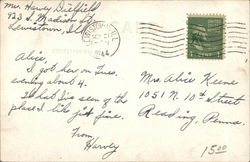 Mr. Harvey
923 S. Madison St.
Lewistown, Ill.
LEWISTOWN, ILL.
1944
Alice,
I got here on Tues.
evening about 4.
What I've seen of the
place I like
just fine.
From
Harvey
Mrs. Alice Keene
1051 N. 10th Street
Reading, Penna.
15.00